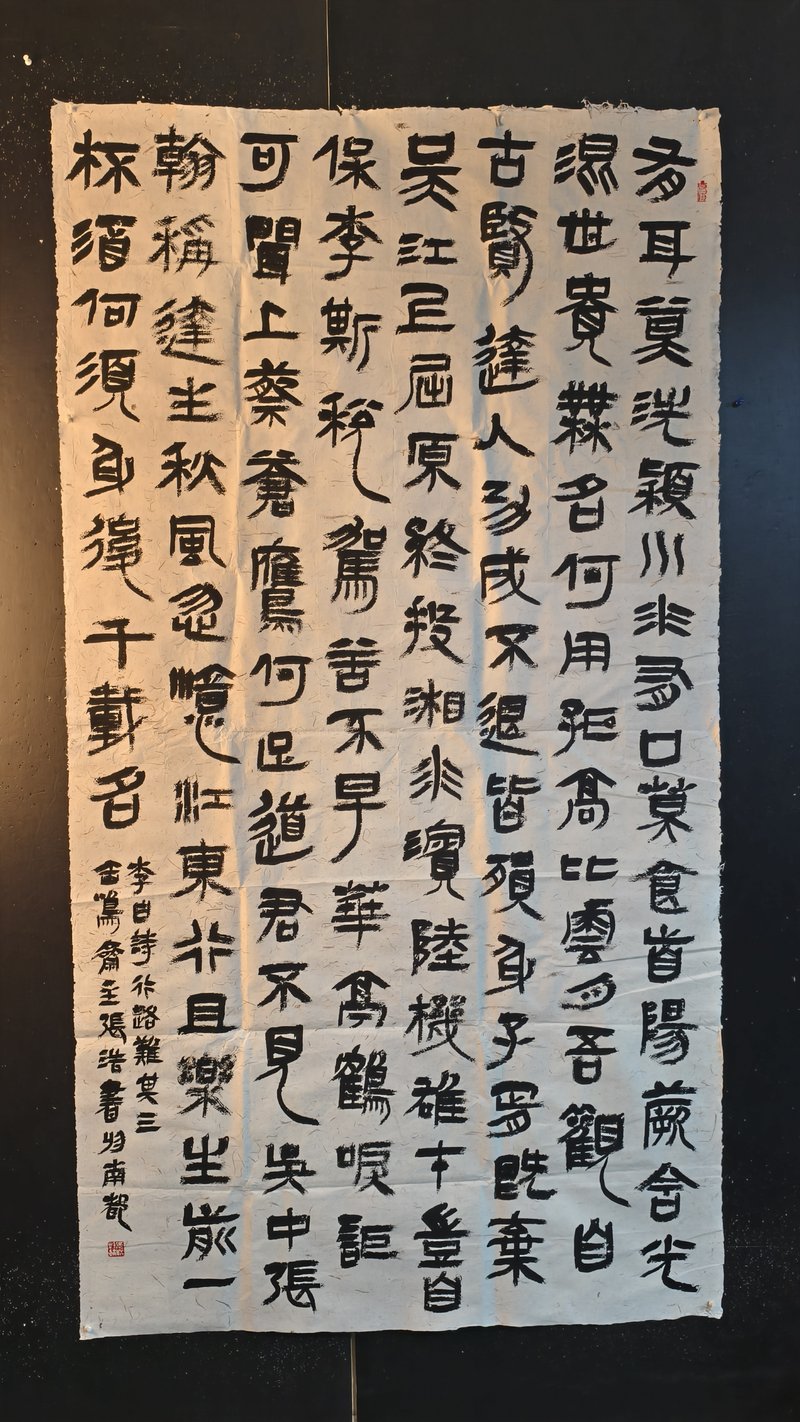 有耳莫洗潁川水有口莫食首陽蕨含光
混世貴無名何用孤高比雲月吾觀自
古賢達人功成不退皆殞身子胥既棄
吳江上屈原終投湘水濱陸機雄才豈自
保李斯稅駕苦不早華亭鶴唳詎
可聞上蔡蒼鷹何足道君不見吳中張
翰稱達生秋風忽憶江東行且樂生前一
杯湏何須身後千載名
李白詩行路難其三
鳴齋主張浩書於南都